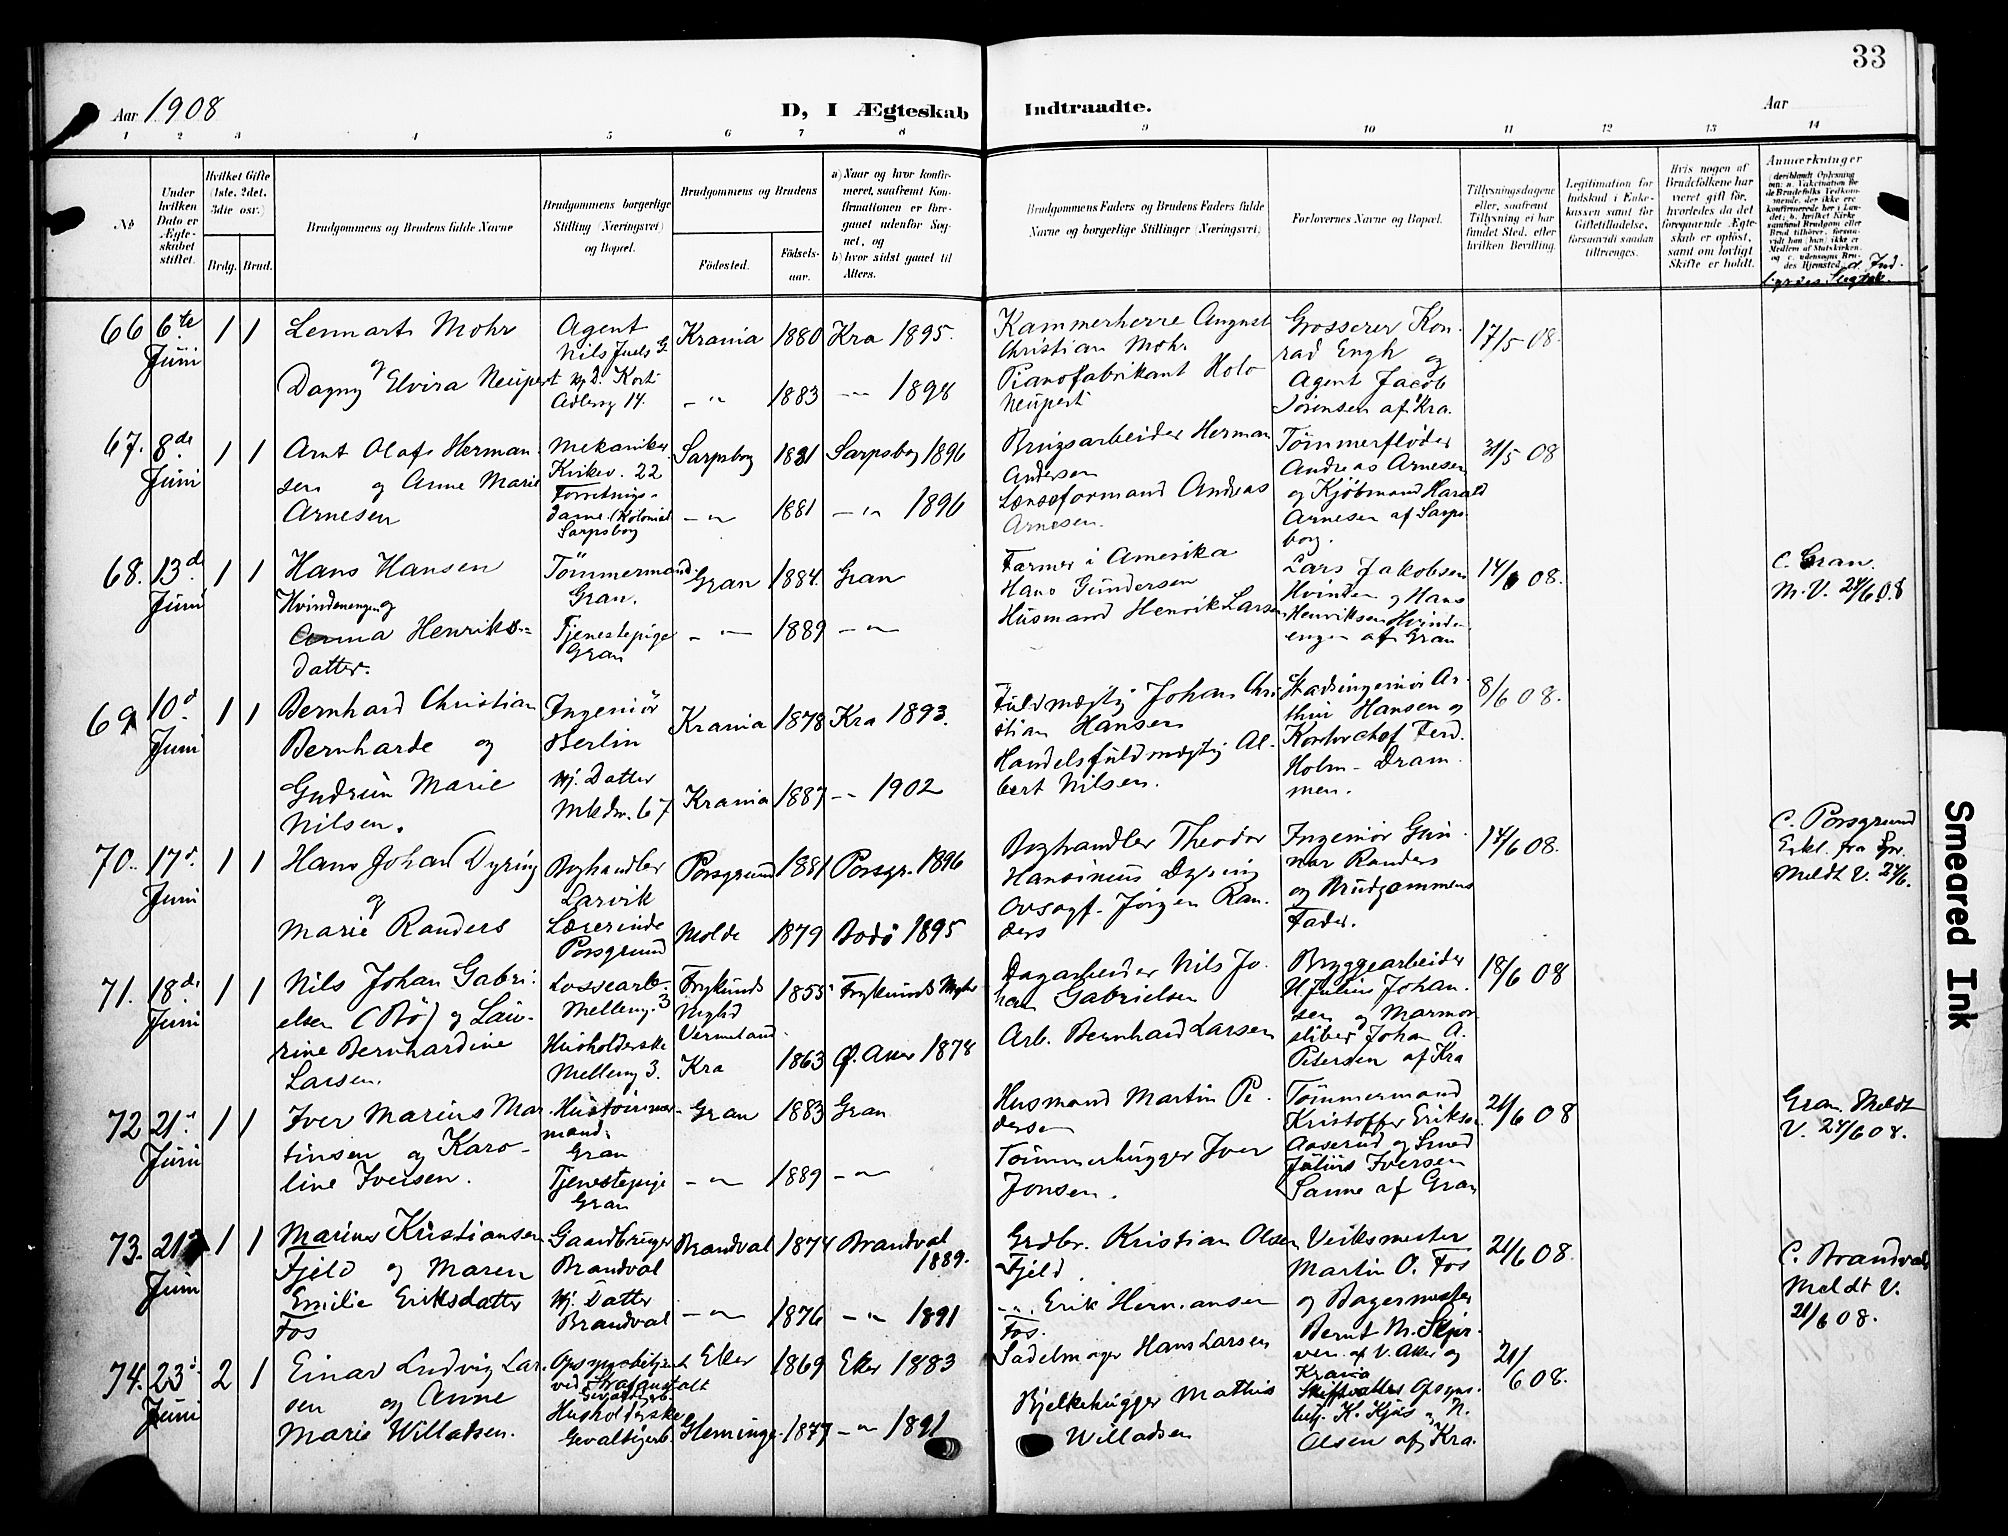 33
Aar 1908
D, I Ægteskab Indtraadte.
Aar
1 2 3 4 5 6 7 8 9 10 11 12 13 14
No
Under hvilken Dato er Ægteskabet stiftet.
Hvilket Gifte (1ste, 2det, 3die osv.)
Brdg. Brud.
Brudgommens og Brudens fulde Navne
Brudgommens borgerlige Stilling (Næringsvei) og Bopæl.
Brudgommens og Brudens
Fødested.
Fødselsaar.
a) Naar og hvor konfirmeret, saafremt Konfirmationen er foregaaet udenfor Sognet, og
b) hvor sidst gaaet til Alters.
Brudgommens Faders og Brudens Faders fulde Navne og borgerlige Stillinger (Næringsvei)
Forlovernes Navne og Bopæl.
Tillysningsdagene eller, saafremt Tillysning ei har fundet Sted, efter hvilken Bevilling.
Legitimation for Indskud i Enkekassen samt for Giftetilladelse, forsaavidt saadan tiltrænges.
Hvis nogen af Brudefolkene har været gift før, hvorledes da det foregaaende Ægteskab er opløst, samt om lovligt Skifte er holdt.
Anmærkninger
66 6te Juni 1 1
Lennart Mohr
og
Dagny Elvira Neupert
Agent
Nils Juels G.
Hj. D. Kort
Adlersg 14.
Krania 1880 Kra 1895.
-"- 1883 -"- 1898
Kammerherre August
Christian Mohr
Pianofabrikant Holo
Neupert
Grosserer Kon-
rad Engh og
Agent Jacob
Sørensen af Kra.
17/5 08.
67. 8de Juni 1 1
Arnt Olaf Herman-
sen og Anne Marie
Arnesen
Mekaniker
Kirkev. 22
Forretnings-
dame (Kolonial
Sarpsborg
Sarpsbog 1881 Sarpsbog 1896
-"- 1881 -"- 1896
Brugsarbeider Herman
Andersen
Lenseformand Andreas
Arnesen.
Tømmerfløder
Andreas Arnesen
og Kjøbmand Harald
Arnesen af Sarps-
borg.
31/5 08
68. 13d. Juni 1 1
Hans Hansen
Hvindenengen og
Anna Henriks-
datter.
Tømmermand
Gran.
Tjenestepige
Gran
Gran 1884. Gran
-"- 1889 -"-
Farmer i Amerika
Hans Gundersen
Husmand Henrik Larsen
Lars Jakobsen
Hvinden og Hans
Henriksen Hvinden-
engen af Gran
14/6 08.
C. Gran.
M. V. 24/6 08
69 10d. Juni 1 1
Bernhard Christian
Bernharde og
Gudrun Marie
Nilsen.
Ingeniør
Berlin
Hj. Datter
Mkdw. 67
Krania 1878 Kra 1893.
Krania 1887 -"- 1902
Fuldmægtig Johan Chri-
stian Hansen
Handelsfuldmægtig Al-
bert Nilsen.
Stadsingeniør Ar-
thur Hansen og
Kontorchef Ferd.
Holm - Dram-
men.
8/6 08.
70. 17d. Juni 1 1
Hans Johan Dyring
og
Marie Randers
Boghandler
Larvik
Lærerinde
Porsgrund
Porsgrund 1881 Porsgr. 1896
Molde 1879 Bodø 1895
Boghandler Theodor
Hansinius Dyring
Ovsagf. Jörgen Ran-
ders
Ingeniør Gun-
nar Randers
og Brudgommens
Fader.
14/6 08.
C. Porsgrund
Erkl. fra Spr.
Meldt V. 24/6.
71. 18de Juni 1 1
Nils Johan Gabri-
elsen (Bö) og Lau-
rine Bernhardine
Larsen.
Lossearb.
Melleng. 3
Husholderske
Melleng 3.
Frykunds
Vermeland
Kra
1855 Frykunds
1863 Ø. Aker 1878
Dagarbeider Nils Jo-
han Gabrielsen
Arb. Bernhard Larsen
Bryggearbeider
Hjulius Johan-
sen og Marmor-
sliber Johan A.
Petersen af Kra
18/6 08
72 21de Juni 1 1
Iver Marius Mar-
tinsen og Karo-
line Iversen.
Hustømmer-
mand.
Gran
Tjenestepige
Gran
Gran 1883 Gran
-"- 1889 -"-
Husmand Martin Pe-
dersen
Tømmerhugger Iver
Jonsen.
Tømmermand
Kristoffer Eriksen
Aaserud og Smed
Julius Iversen
Sanne af Gran
21/6 08
Gran. Meldt
V. 24/6 08.
73. 21d Juni 1 1
Marius Kristiansen
Fjeld og Maren
Emilie Eriksdatter
Fos
Gaardbruger
Brandval
Hj. Datter
Brandval
Brandval 1874 Brandval 1889.
-"- 1876 -"- 1891
Grdbr. Kristian Olsen
Fjeld.
-"- Erik Hermansen
Fos.
Verksmester
Martin O. Fos
og Bagermester
Bernt M. Skjer-
ven af V. Aker og
Krania
21/6 08.
C. Brandval
Meldt V.
21/6 08.
74. 23d Juni 2 1
Einar Ludvig Lar-
sen og Anne
Marie Willadsen.
Opsynsbetjent
ved Strafanstalt
Husholderske
Gevaltigerb.
Eker 1869 Eker 1883
Gleminge 1877 -"- 1891
Sadelmager Hans Larsen
Bjelkehugger Mathis
Willadsen
Opsyns-
betj. K. Kjös og N.
Olsen af Kra.
21/6 08.
Smeared Ink